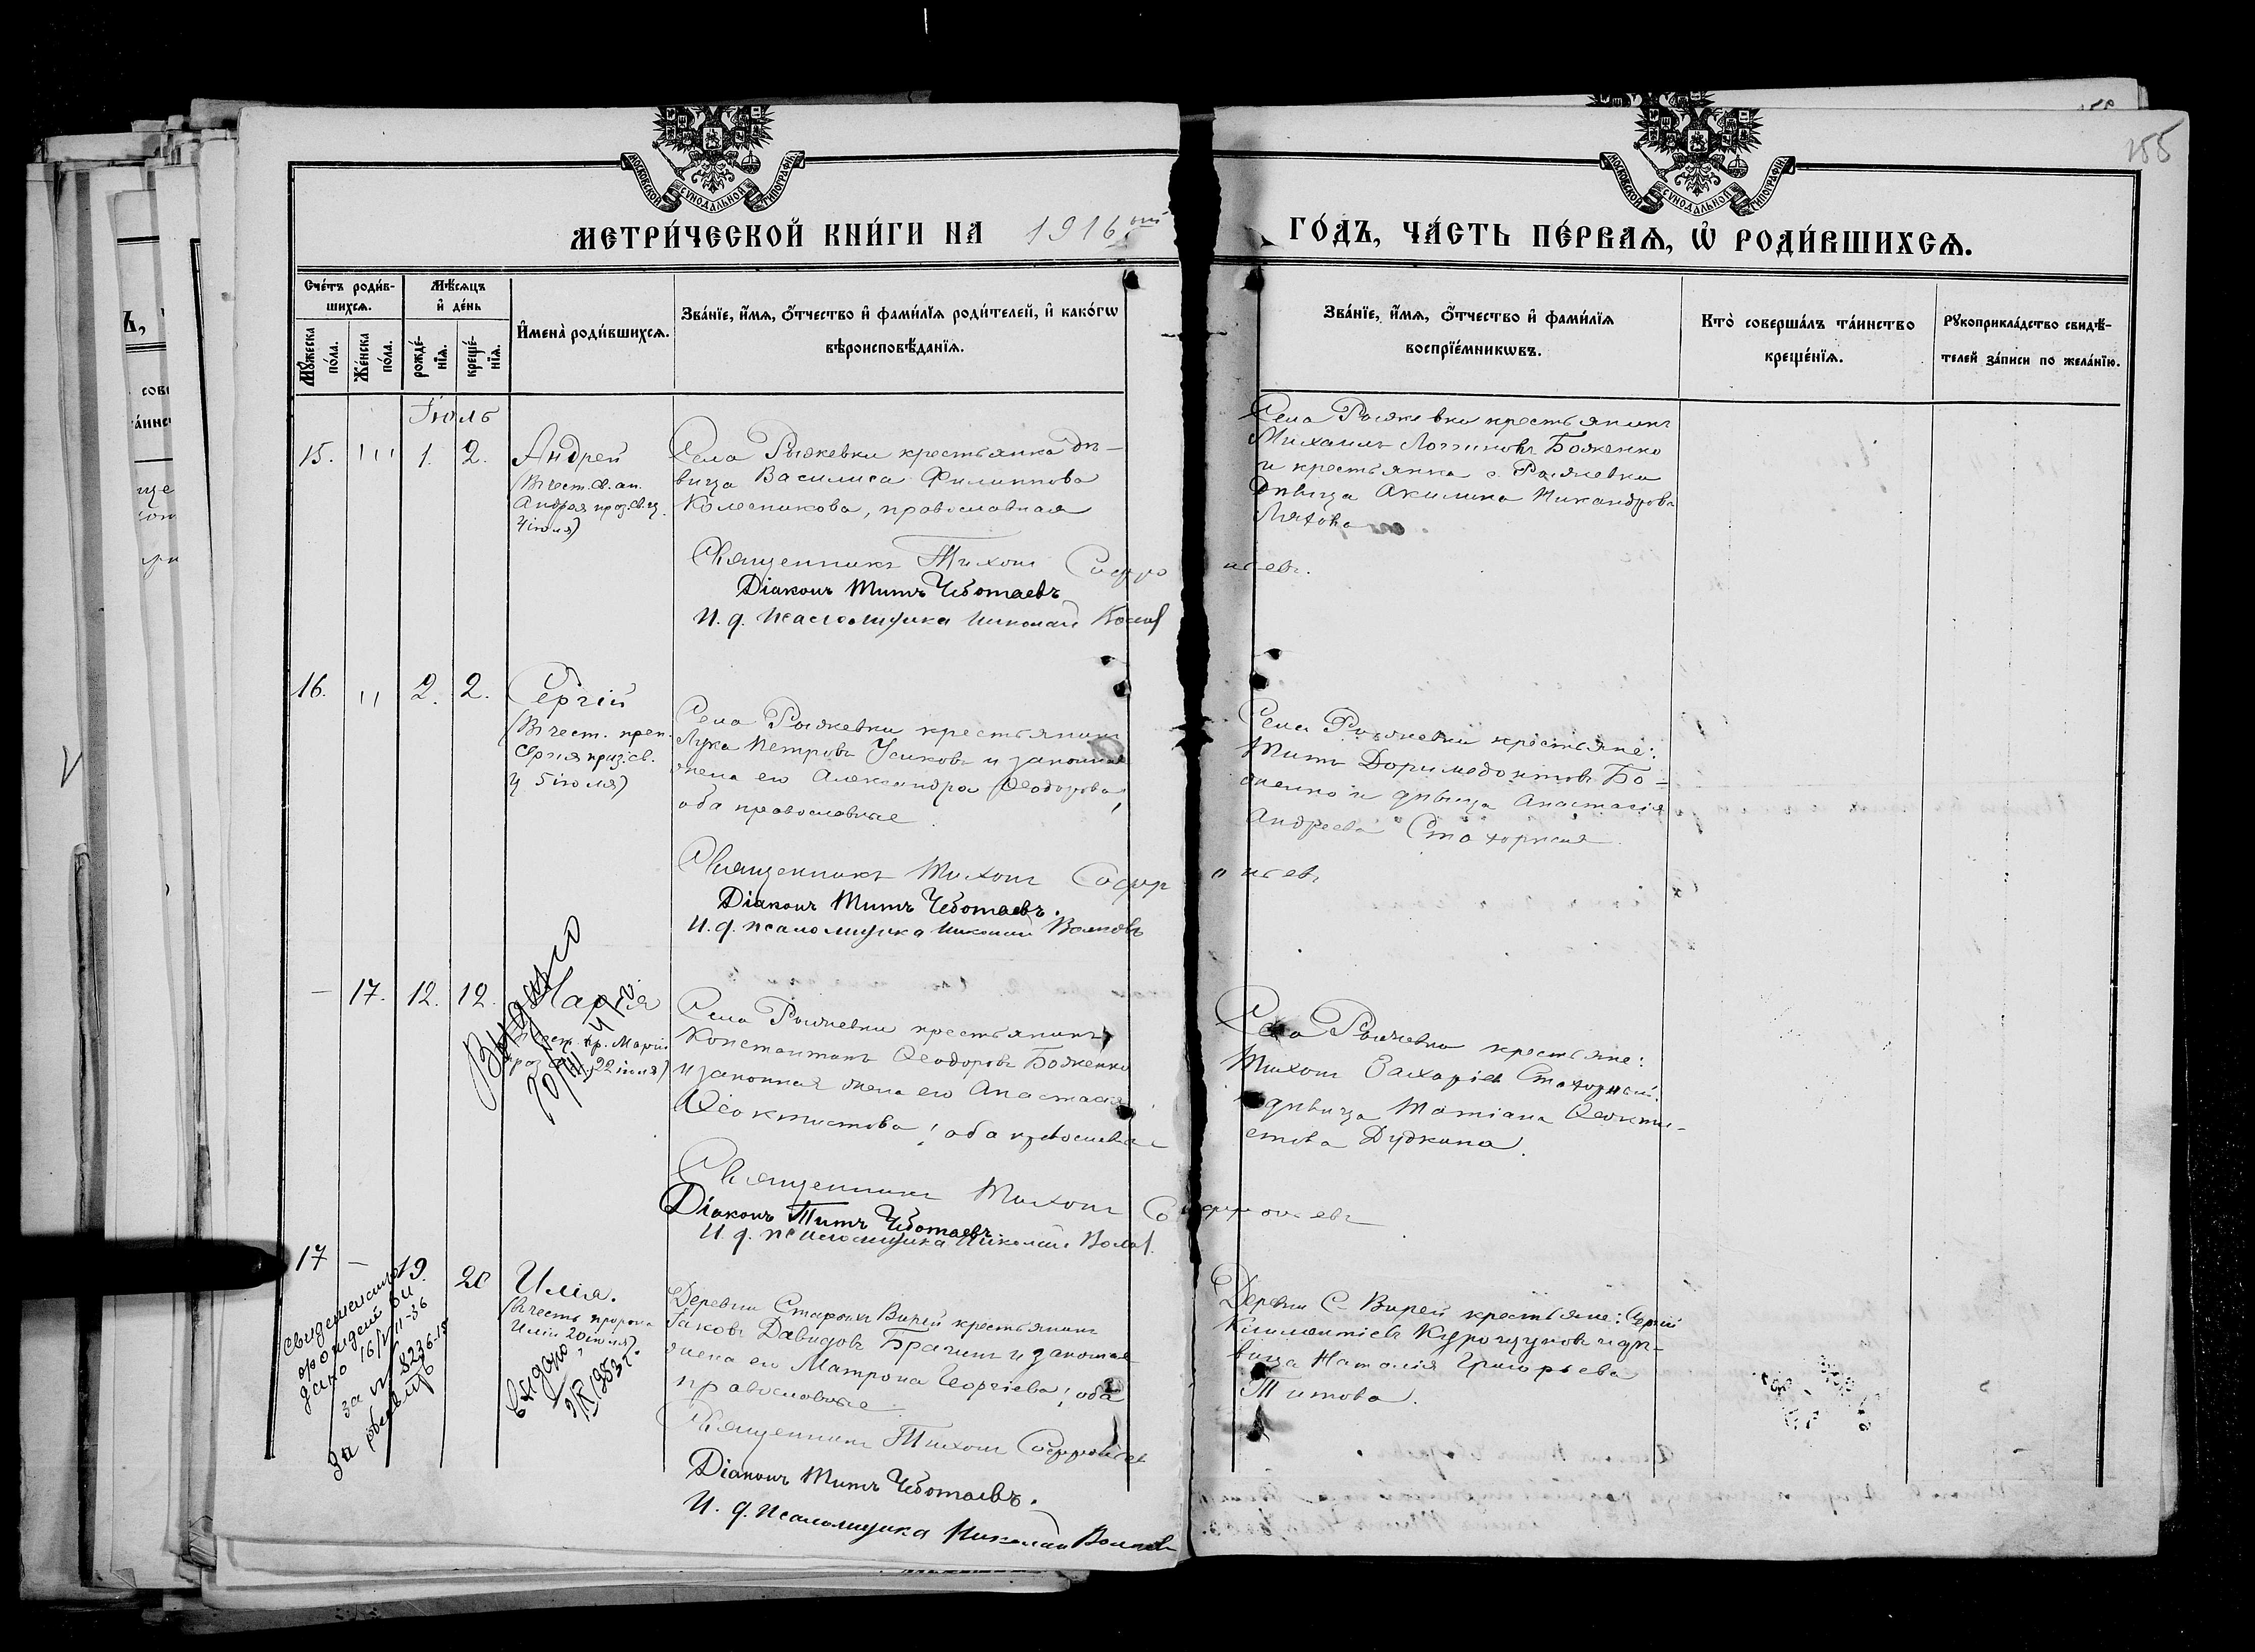 155
МОСКОВСКОЙ СѴНОДАЛЬНОЙ ТИПОГРАФІИ
МОСКОВСКОЙ СѴНОДАЛЬНОЙ ТИПОГРАФІИ
МЕТРИ́ЧЕСКОЙ КНИ́ГИ НА 1916 ый ГО́ДЪ, ЧА́СТЬ ПЕ́РВАѦ, Ѡ҆ РОДИ́ВШИХСѦ.
Сче́тъ роди́в-
шихсѧ.
Мꙋ́жеска
по́ла.
Же́нска
по́ла.
Мѣ́сѧцъ
и҆ де́нь
рожде́-
нїѧ.
креще́-
нїѧ.
И҆мена̀ роди́вшихсѧ.
Зва́нїе, и҆́мѧ, ѻ҆́тчество и҆ фами́лїѧ роди́телей, и҆ како́гѡ
вѣроисповѣ́данїѧ.
Зва́нїе, и҆́мѧ, ѻ҆́тчество и҆ фами́лїѧ
воспрїе́мникѡвъ.
Кто̀ соверша́лъ та́инство
креще́нїѧ.
Рꙋкоприкла́дство свидѣ́-
телей за́писи по жела́нїю.
Іюль
15. " 1. 2. Андрей
(Въ чест. св. ап.
Андрея праз. св. ц.
4 іюля)
Села Рыжевки крестьянка дѣ-
вица Василиса Филиппова
Колесникова, православная
Села Рыжевки крестьянинъ
Михаилъ Логиновъ Боженко
и крестьянка с. Рыжевки
дѣвица Акилина Никандрова
Ляхова
Священникъ Тихон Софрониевъ.
Діаконъ Титъ Чеботаевъ
И. д. псаломщика Николай Волков
16. " 2. 2. Сергій
(Въ чест. преп.
Сергія праз. св.
ц 5 іюля)
Села Рыжевки крестьянин
Лука Петровъ Усиковъ и законная
жена его Александра Ѳеодорова,
оба православные.
Села Рыжевки крестьяне:
Титъ Доримедонтовъ Бо-
женко и дѣвица Анастасія
Андреева Стахорная.
Священникъ Тихонъ Софрониевъ
Діаконъ Титъ Чеботаевъ.
И. д. псаломщика Николай Волковъ
– 17. 12. 12. Марія
чест. пр. Маріи
22 іюля)
Выдано
Села Рыжевки крестьянинъ
Константинъ Ѳеодоровъ Боженко
и законная жена его Анастасія
Ѳеоктистова; оба православные
Села Рыжевки крестьяне:
Тихонъ Захаріев Стахорный
дѣвица Татіана Ѳеокти-
стова Дудкина.
Священникъ Тихонъ Софрониевъ
Діаконъ Титъ Чеботаевъ
И. д. псаломщика Николай Волков.
17 – 19. 20 Илія.
(Въ честь пророка
Иліи 20 іюля)
выдано
Свидетельство
о рождении вы
дано 16/VII-36
за № 8236-18
За
Деревни Старыхъ Вирей крестьянинъ
Іаковъ Давидовъ Брагинъ и законная
жена его Матрона Георгіева; оба
православные.
Деревни С- Вирей крестьяне: Сергій
Климентіевъ Курочкуновъ и дѣ-
вица Наталія Григорьева
Титова.
Священникъ Тихонъ Софрониев
Діаконъ Титъ Чеботаевъ.
И. д. псаломщика Николай Волковъ